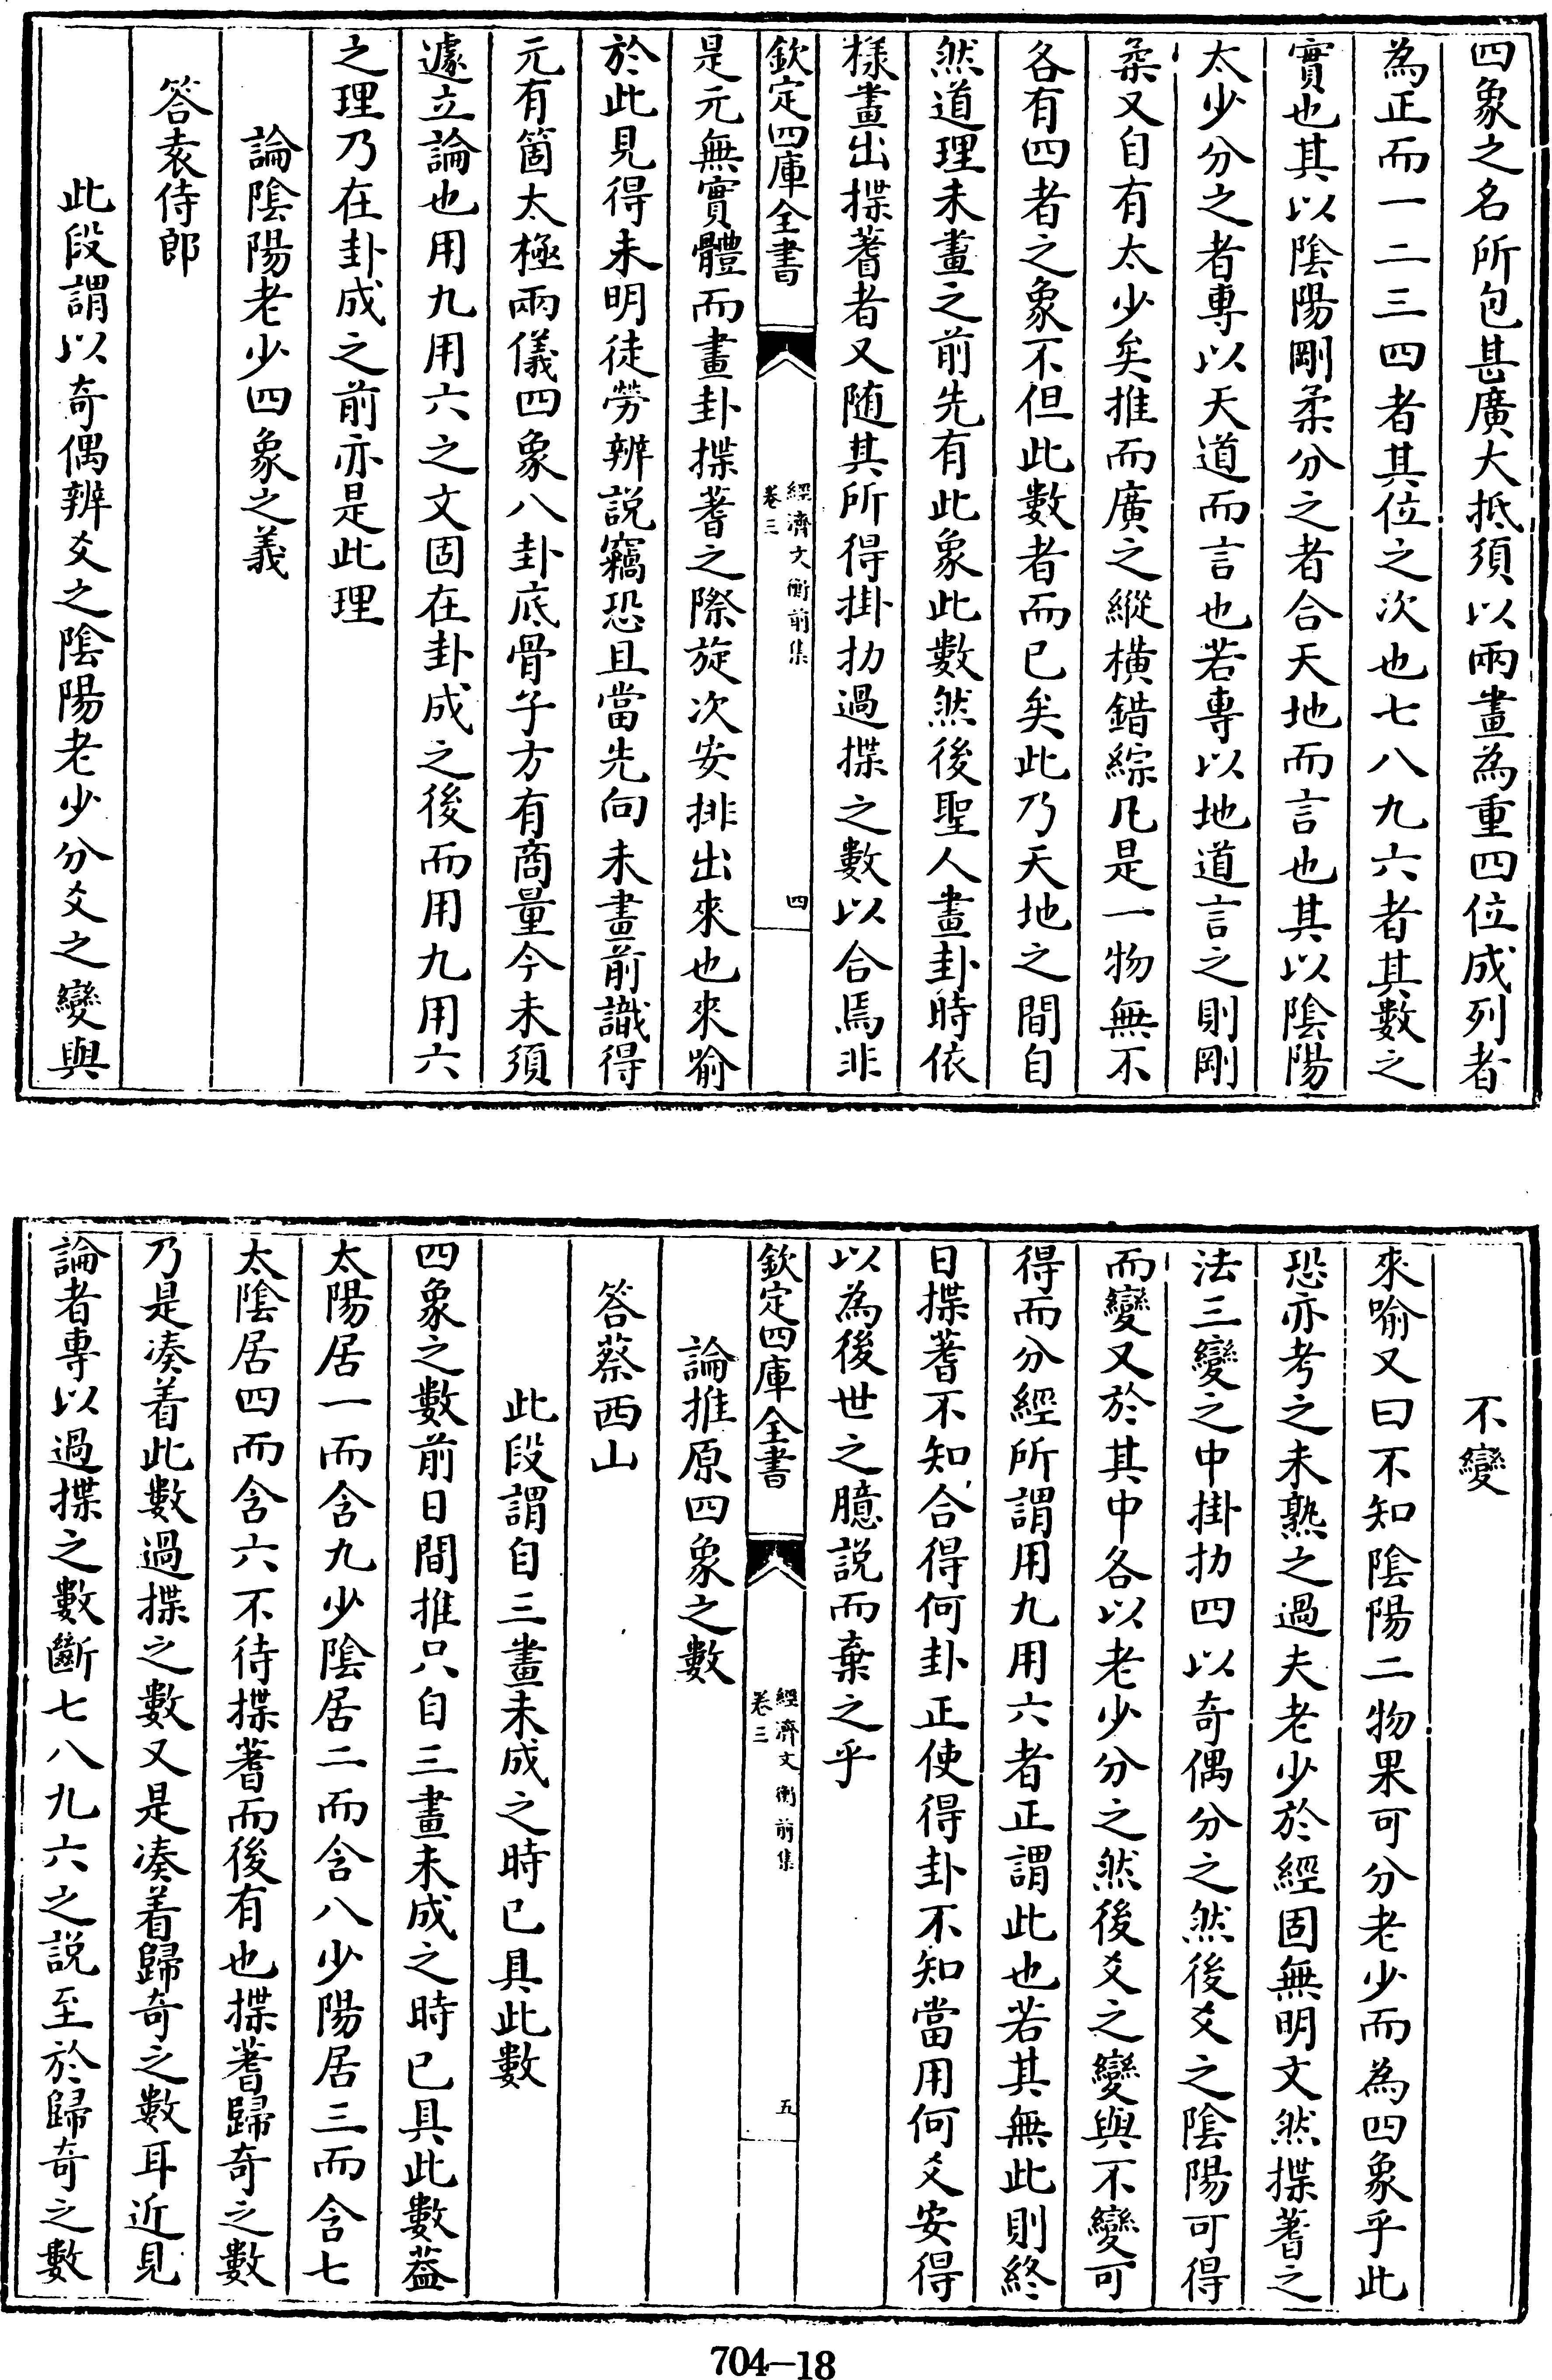 四象之名所包甚廣大抵須以兩畫為重四位成列者
為正而一二三四者其位之次也七八九六者其數之
實也其以陰陽剛柔分之者合天地而言也其以陰陽
太少分之者專以天道而言也若專以地道言之則剛
柔又自有太少矣推而廣之縱橫錯綜凡是一物無不
各有四者之象不但此數者而已矣此乃天地之間自
然道理未畫之前先有此象此數然後聖人畫卦時依
樣畫出揲蓍者又随其所得掛扐過揲之數以合焉非
欽定四庫全書
經濟文衡前集
卷三
四
是元無實體而畫卦揲蓍之際旋次安排出來也來喻
於此見得未明徒勞辨說竊恐且當先向未畫前識得
元有箇太極兩儀四象八卦底骨子方有商量今未須
遽立論也用九用六之文固在卦成之後而用九用六
之理乃在卦成之前亦是此理
論陰陽老少四象之義
答袁侍郎
此段謂以奇偶辨爻之陰陽老少分爻之變與
不變
來喻又曰不知陰陽二物果可分老少而為四象乎此
恐亦考之未熟之過夫老少於經固無明文然揲蓍之
法三變之中掛扐四以奇偶分之然後爻之陰陽可得
而變又於其中各以老少分之然後爻之變與不變可
得而分經所謂用九用六者正謂此也若其無此則終
日揲蓍不知合得何卦正使得卦不知當用何爻安得
以為後世之臆説而棄之乎
欽定四庫全書
經濟文衡前集
卷三
五
論推原四象之數
答蔡西山
此段謂自三畫未成之時已具此數
四象之數前日間推只自三畫未成之時已具此數蓋
太陽居一而含九少陰居二而含八少陽居三而含七
太陰居四而含六不待揲蓍而後有也揲蓍歸奇之數
乃是凑着此數過揲之數又是凑着歸奇之數耳近見
論者專以過揲之數斷七八九六之説至於歸奇之數
704-18